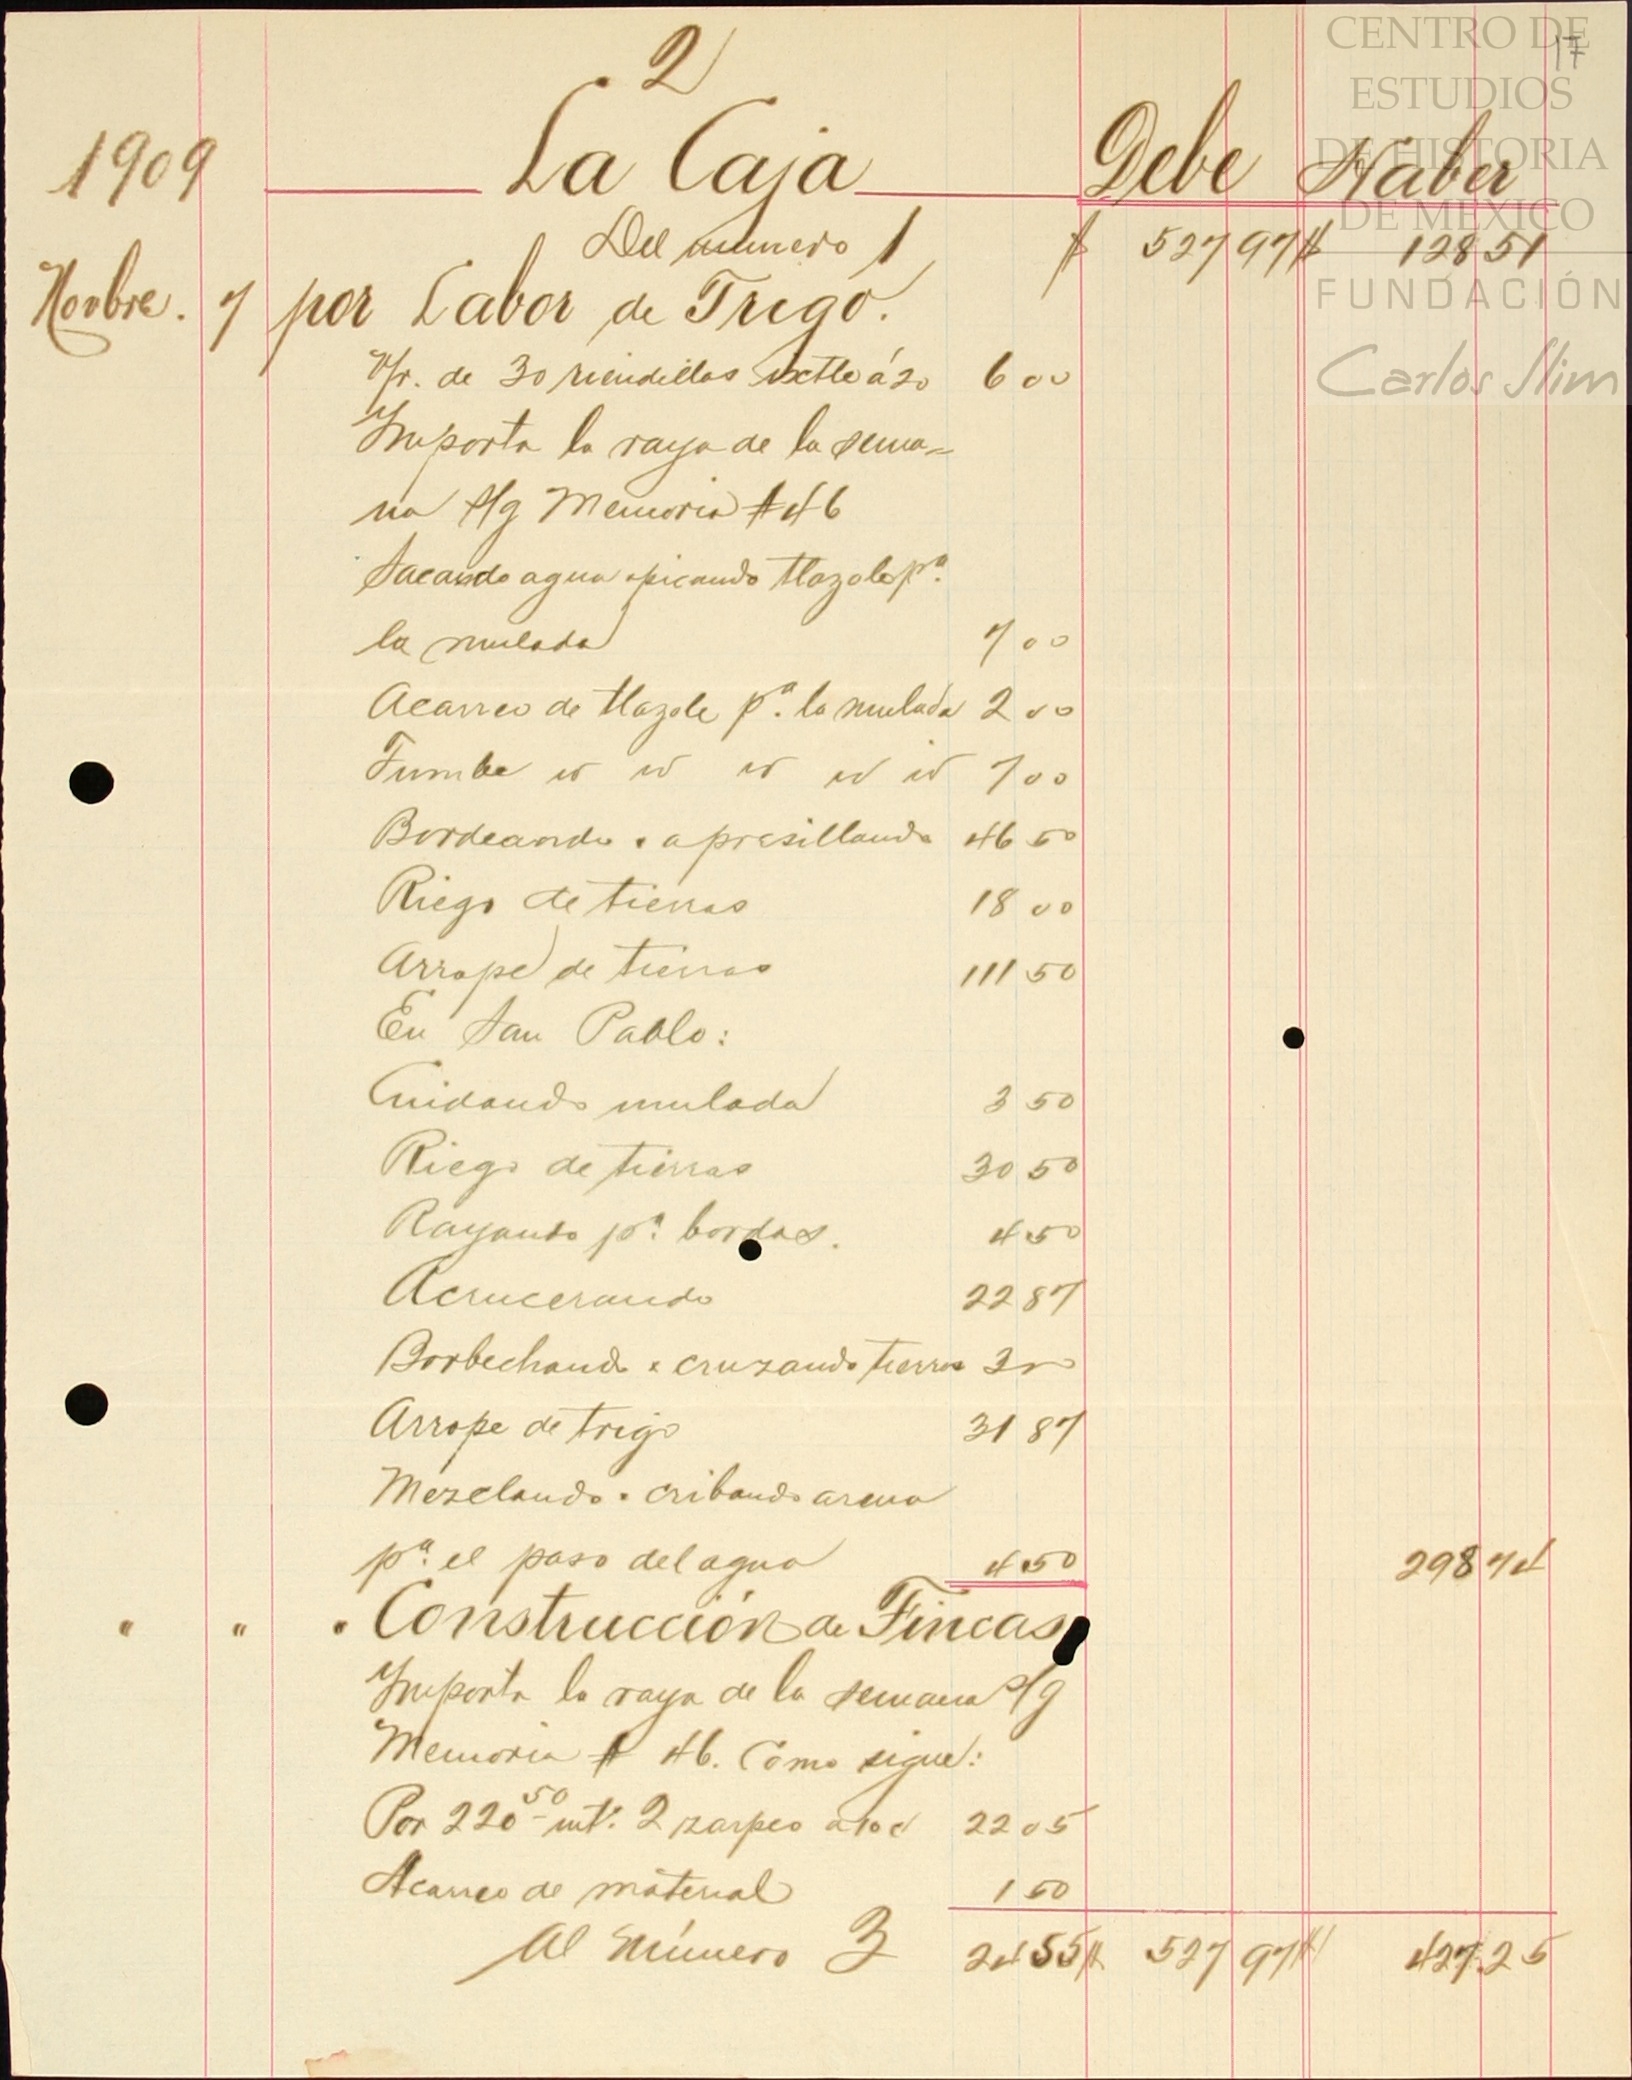 17
2
1909 La Caja Debe Haber
Del numero 1 $ 527 97 $ 128 51
Novbre. 7 por Labor de Trigo.
V/r. de 30 riendillas ixtle á 20 6 00
Importa la raya de la sema=
na s/g Memoria # 46
Sacando agua picando tlazole pa.
la mulada 7 00
Acarreo de tlazole pa. la mulada 2 00
Tumba id id id id id 7 00
Bordeando . apresillando 46 50
Riego de tierras 18 00
Arrope de tierras 111 50
En San Pablo:
Cuidando mulada 3 50
Riego de tierras 30 50
Rayando pa. bordos. 4 50
Acrucerando 22 87
Borbechando x cruzando tierras 3 00
Arrope de trigo 31 87
Mezclando . cribando arena
pa. el paso del agua 4 50 298 74
" " . Construcción de Fincas
Importa la raya de la semana s/g
Memoria # 46. Como sigue:
Por 220 50 mt. 2 zarpeo a 10 c 22 05
Acarreo de material 1 50
Al Número 3 24 55 $ 527 97 $ 427.25
CENTRO DE
ESTUDIOS
DE HISTORIA
DE MÉXICO
FUNDACIÓN
Carlos Slim